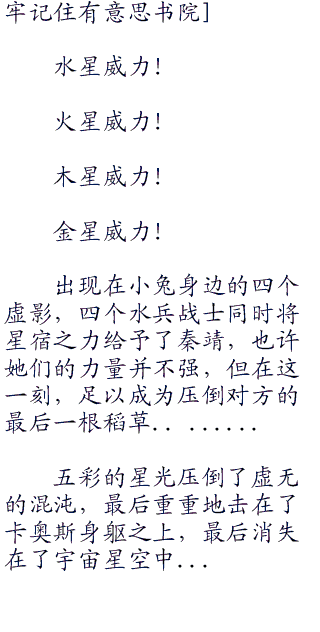 牢记住有意思书院]
水星威力!
火星威力!
木星威力!
金星威力!
出现在小兔身边的四个
虚影，四个水兵战士同时将
星宿之力给予了秦靖，也许
她们的力量并不强，但在这
一刻，足以成为压倒对方的
最后一根稻草.. ......
五彩的星光压倒了虚无
的混沌，最后重重地击在了
卡奥斯身躯之上，最后消失
在了宇宙星空中...